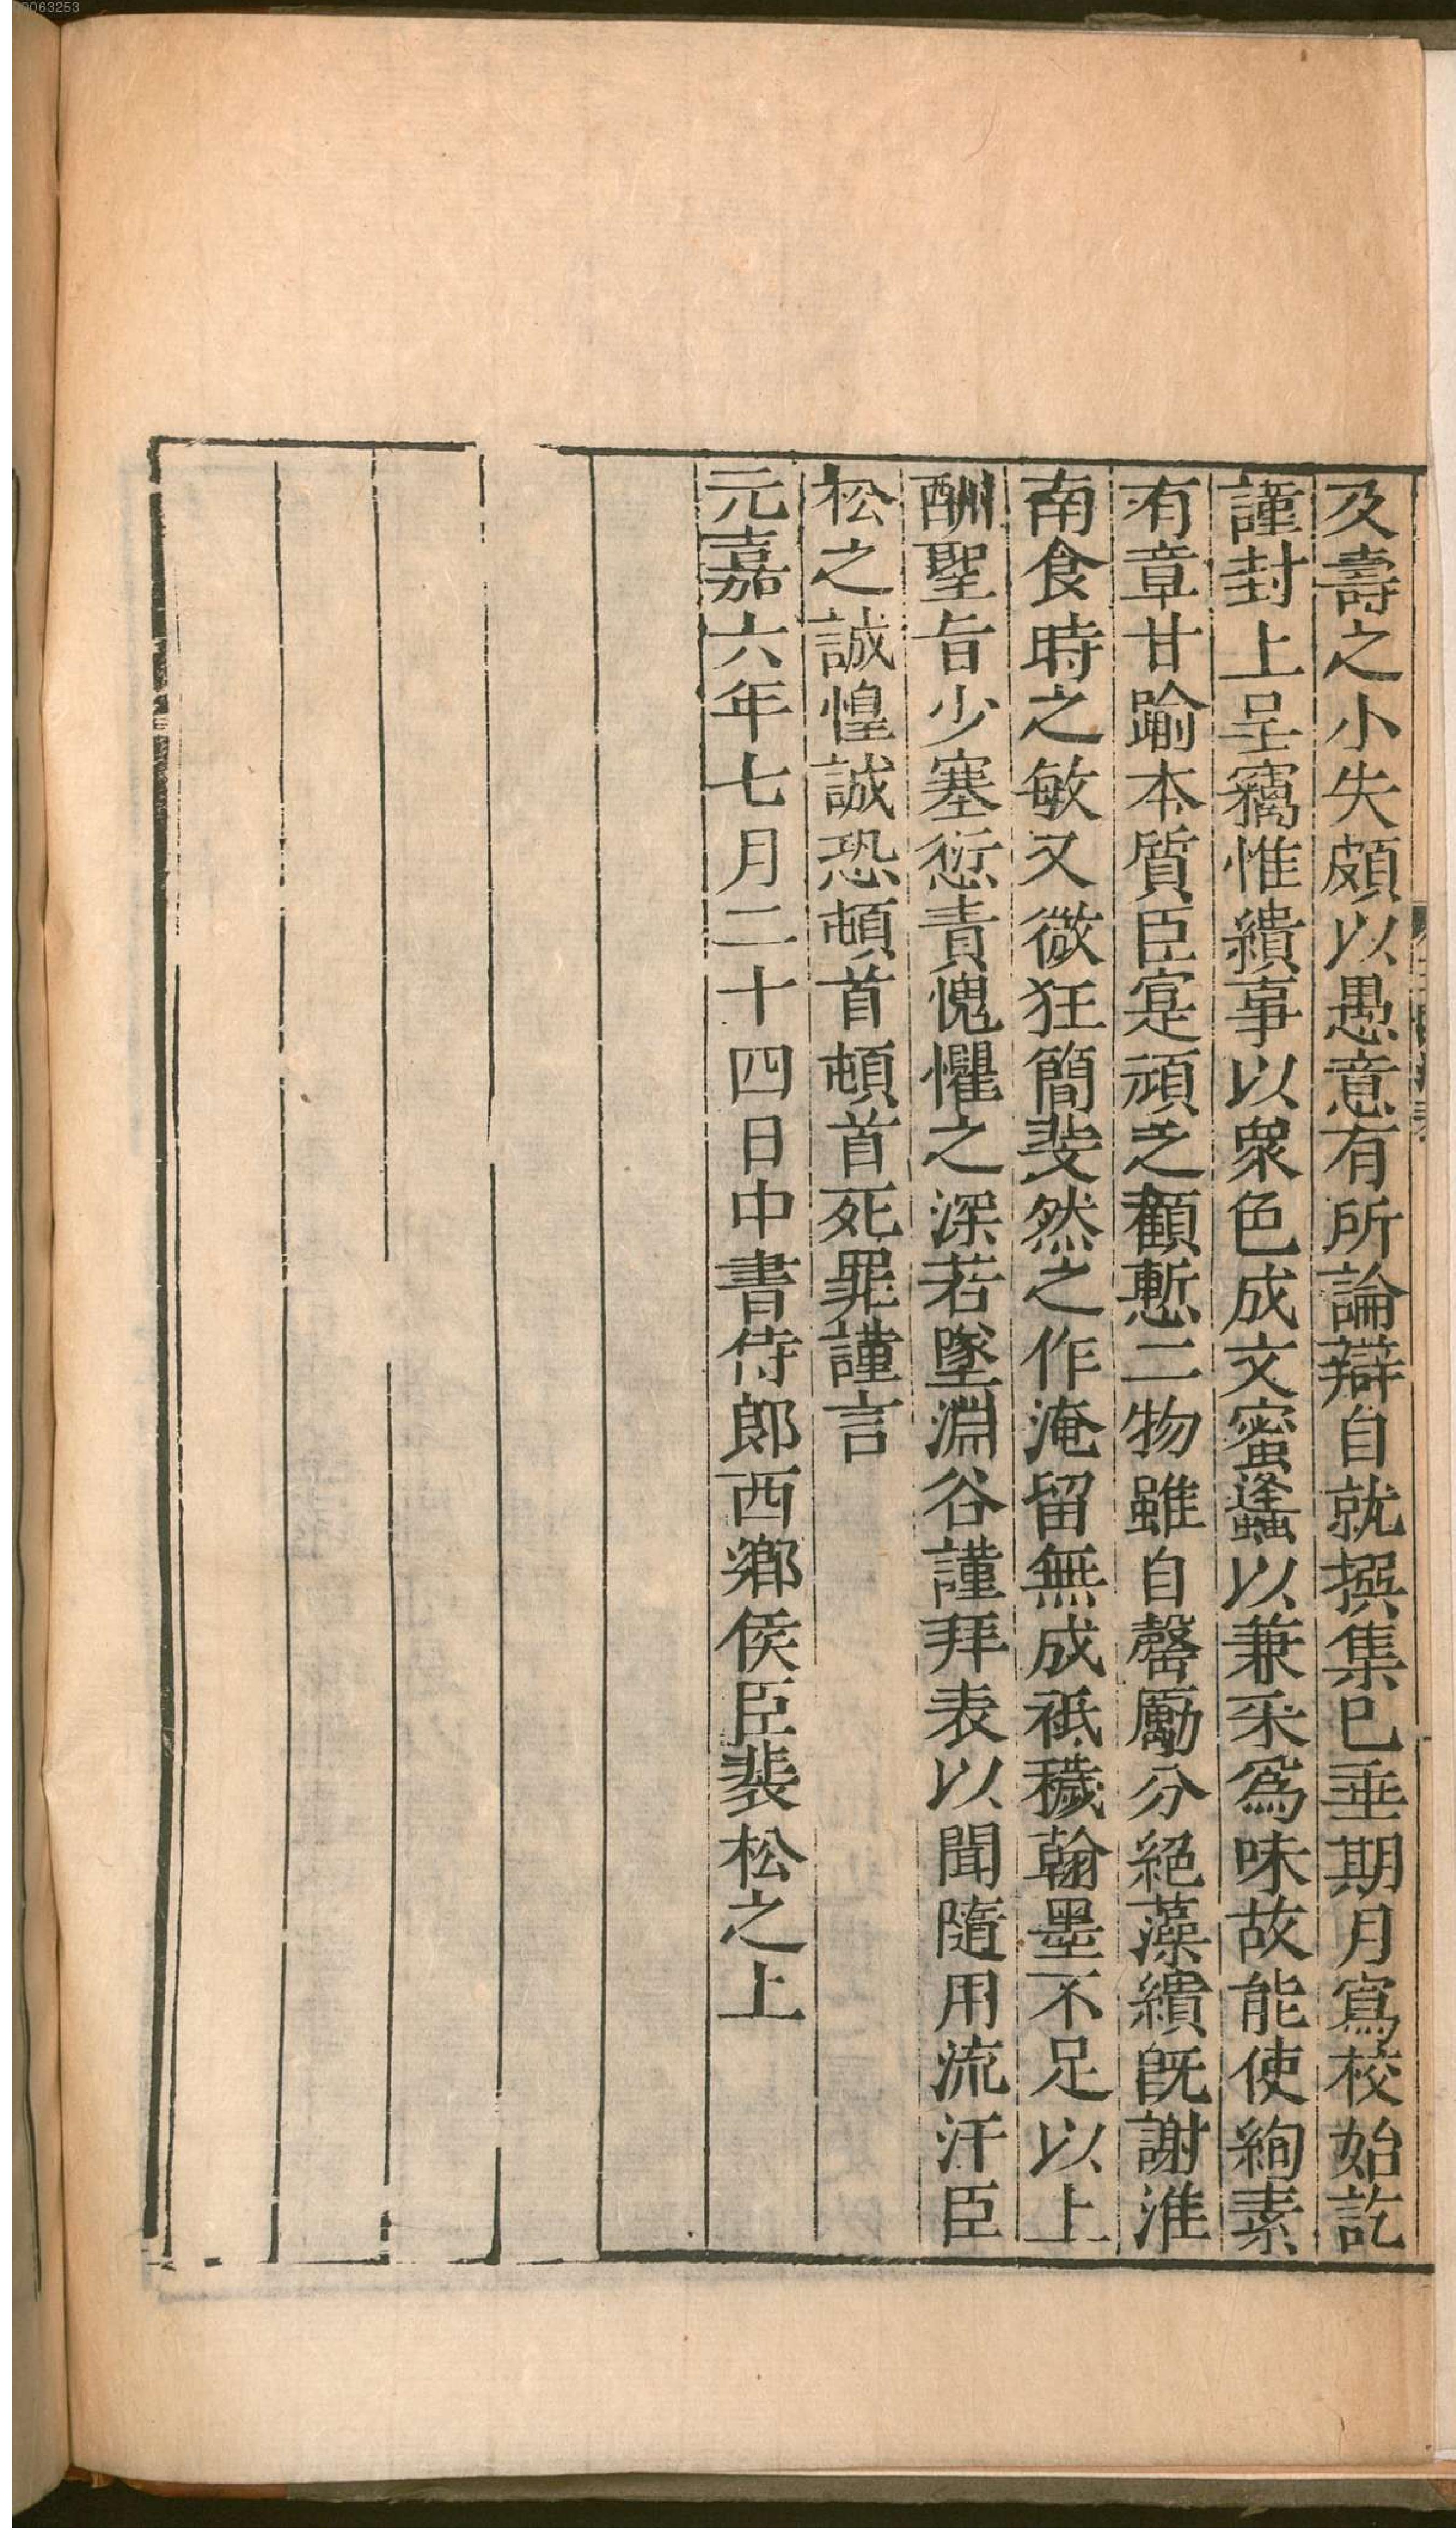 及壽之小失頗以愚意有所論辯自就撰集已垂期月寫校始訖
謹封上呈竊惟繢事以衆色成文蜜蠭以兼采爲味故能使絢素
有章甘踰本質臣寔頑乏顧慙二物雖自罄勵分絕藻繢旣謝淮
南食時之敏又微狂簡斐然之作淹留無成祇穢翰墨不足以上
酬聖旨少塞愆責愧懼之深若墜淵谷謹拜表以聞隨用流汗臣
松之誠惶誠恐頓首頓首死罪謹言
元嘉六年七月二十四日中書侍郎西鄉侯臣裴松之上